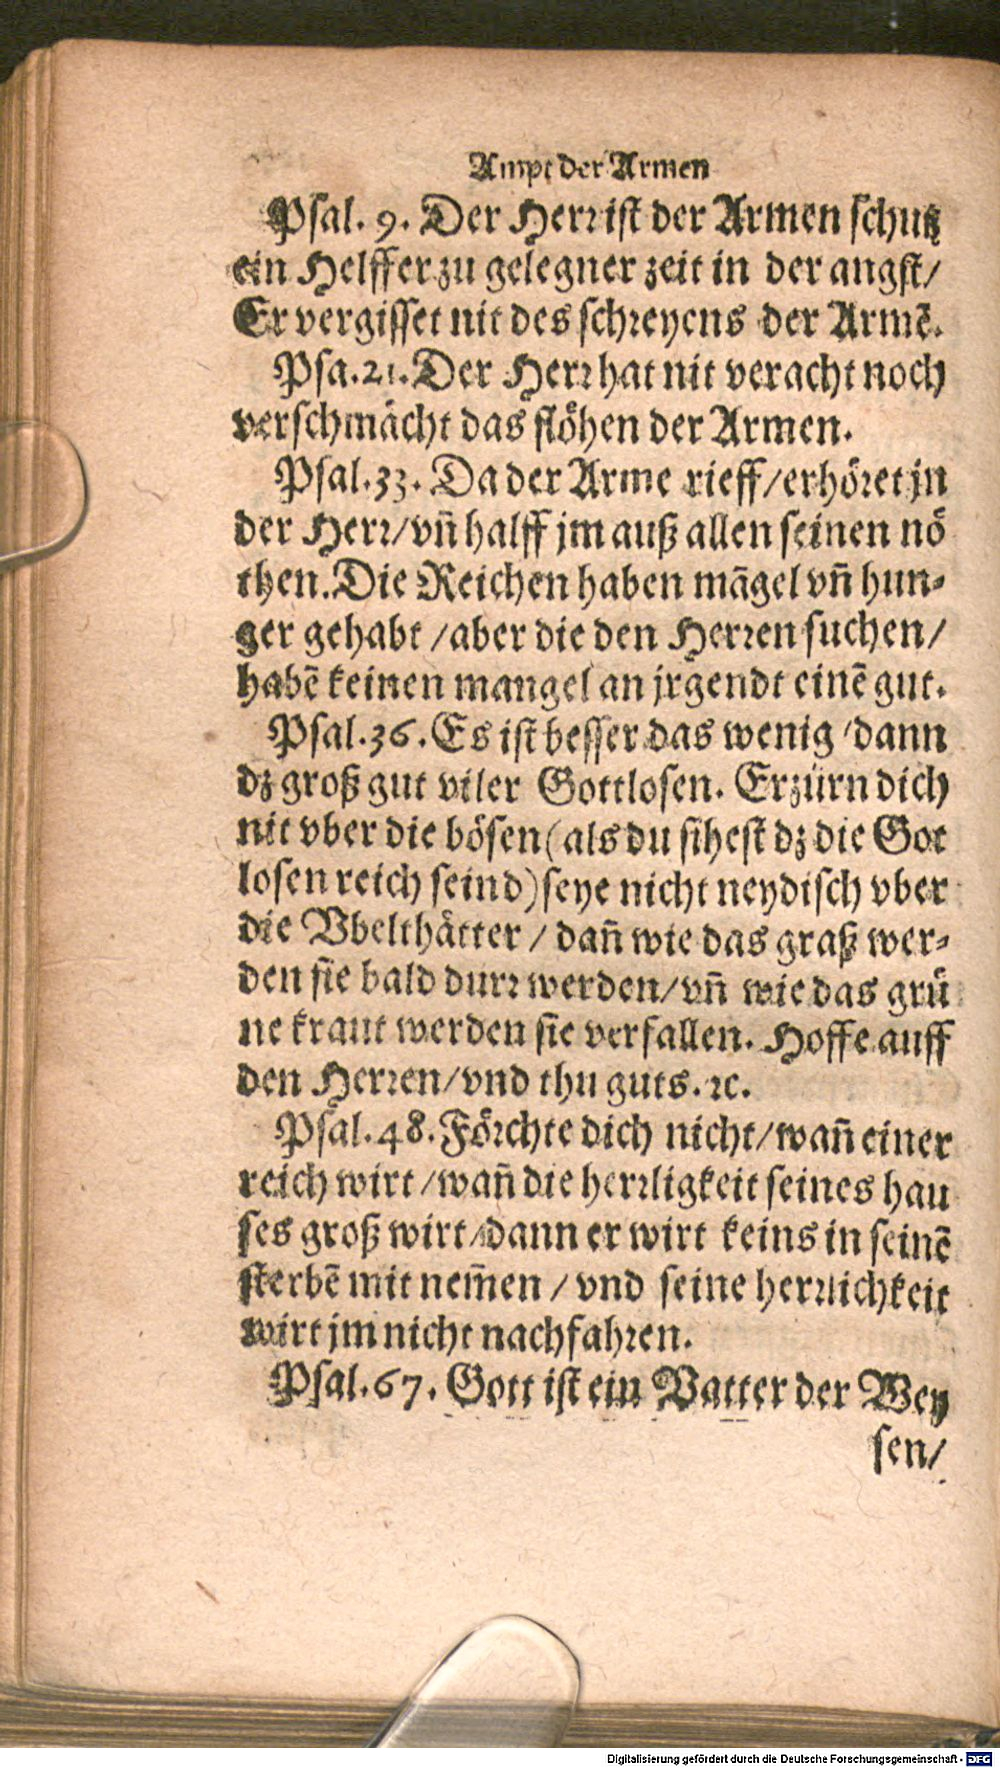 Ampt der Armen
Psal. 9. Der Herr ist der Armen schutz
ein Helffer zu gelegner zeit in der angst/
Er vergisset nit des schreyens der Armē.
Psa. 21. Der Herr hat nit veracht noch
verschmächt das flöhen der Armen.
Psal. 33. Da der Arme rieff/erhöret jn
der Herr/vñ halff jm auß allen seinen nö
then. Die Reichen haben māgel vñ hun-
ger gehabt/aber die den Herren suchen/
habē keinen mangel an jrgendt einē gut.
Psal. 36. Es ist besser das wenig/dann
dz groß gut viler Gottlosen. Erzürn dich
nit vber die bösen(als du sihest dz die Got
losen reich seind)seye nicht neydisch vber
die Vbelthätter/dañ wie das graß wer-
den sie bald durr werden/vñ wie das grü
ne kraut werden sie verfallen. Hoffe auff
den Herren/vnd thu guts. ꝛc.
Psal. 48. Förchte dich nicht/wañ einer
reich wirt/wañ die herrligkeit seines hau
ses groß wirt/dann er wirt keins in seinē
sterbē mit nem̄en/vnd seine herrlichkeit
wirt jm nicht nachfahren.
Psal. 67. Gott ist ein Vatter der Wey
sen/
Digitalisierung gefördert durch die Deutsche Forschungsgemeinschaft - DFG